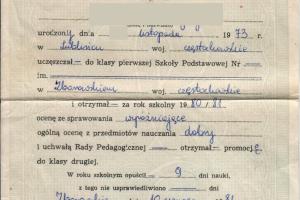 urodzony, dnia listopada 1973 r.
w Lublińcu woj. częstochowskie
uczęszczał do klasy pierwszej Szkoły Podstawowej Nr
im.
w woj. częstochowskie
i otrzymał za rok szkolny 1980/81
ocenę ze sprawowania wyróżniające
ogólną ocenę z przedmiotów nauczania dobry
i uchwałą Rady Pedagogicznej otrzymał promocję
do klasy drugiej.
W roku szkolnym opuścił 9 dni nauki,
z tego nie usprawiedliwiono dni
81